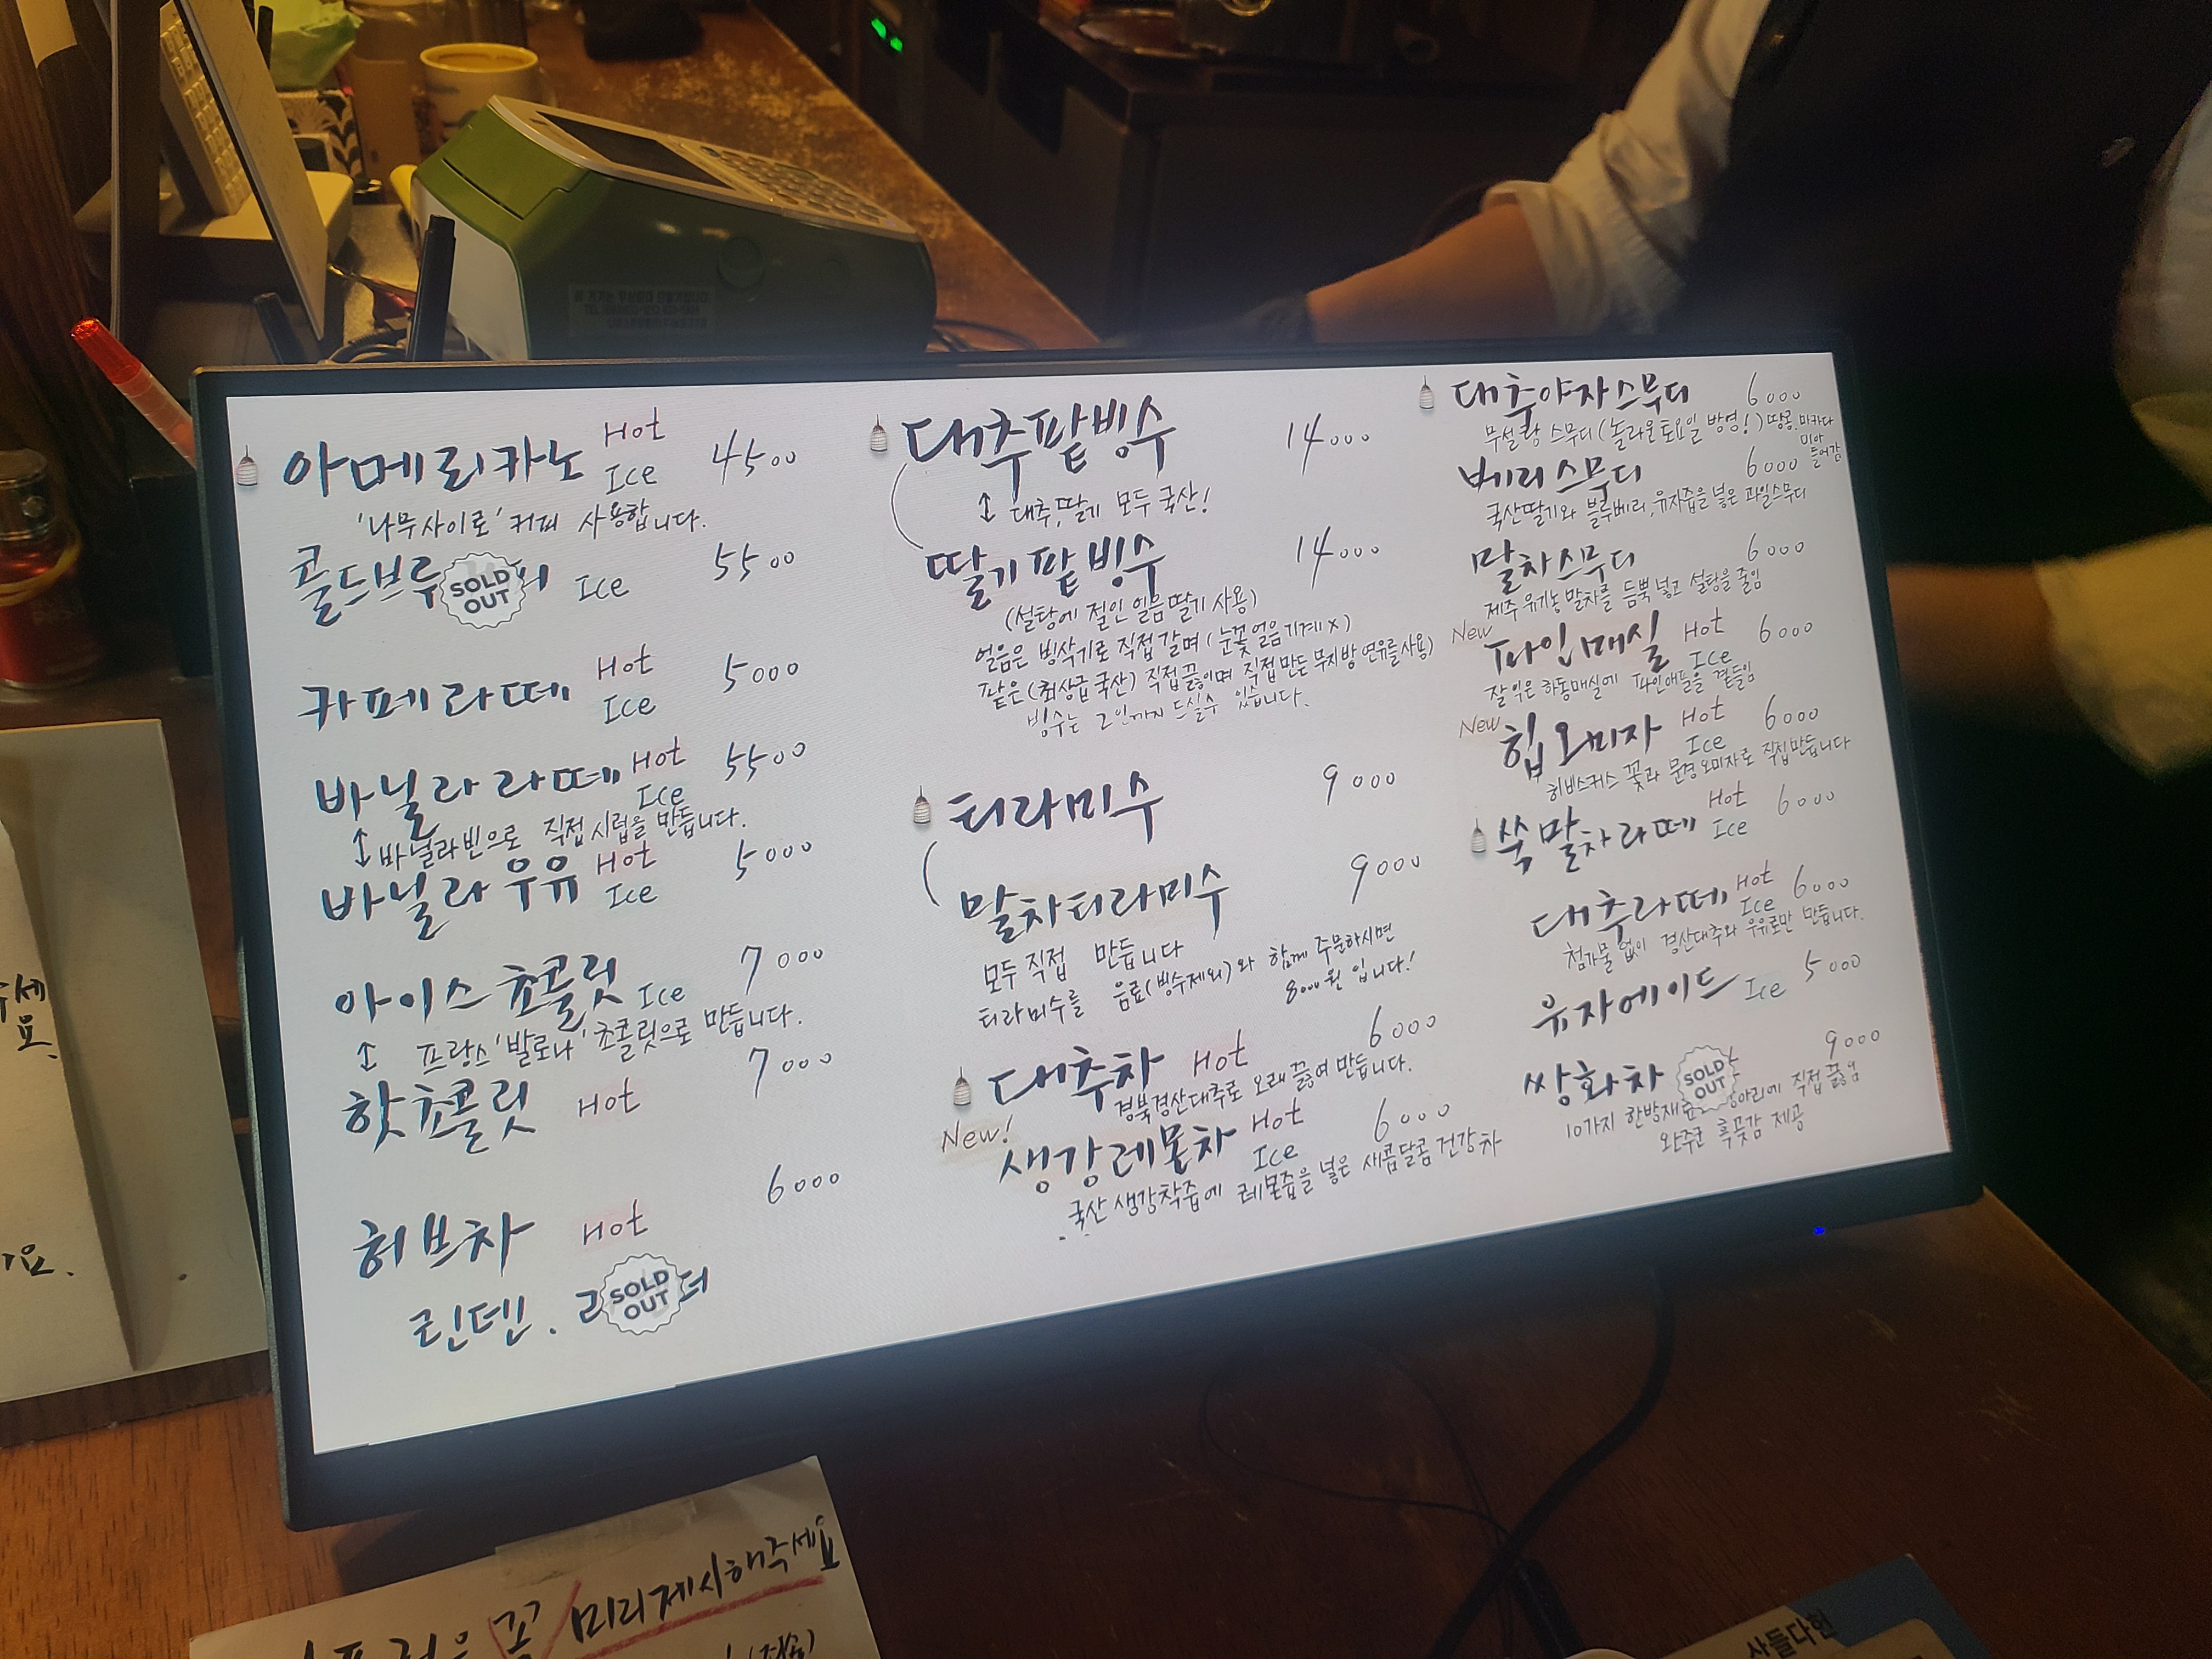 아메리카노 Hot Ice 4500
'나무사이로' 커피 사용합니다.
콜드브루 SOLD OUT Ice 5500
카페라떼 Hot Ice 5000
바닐라라떼 Hot Ice 5500
↕ 바닐라빈으로 직접 시럽을 만듭니다.
바닐라우유 Hot Ice 5000
아이스쵸콜릿 Ice 7000
↕ 프랑스 '발로나' 쵸콜릿으로 만듭니다.
핫쵸콜릿 Hot 7000
허브차 Hot 6000
린덴. SOLD OUT
대추팥빙수 14000
↕ 대추, 딸기 모두 국산!
딸기팥빙수 14000
(설탕에 절인 얼음딸기 사용)
얼음은 빙삭기로 직접 갈며 (눈꽃얼음기계 X)
팥은 (최상급 국산) 직접 끓이며 직접 만든 무지방 연유를 사용)
빙수는 2인까지 드실수 있습니다.
티라미수 9000
말차티라미수 9000
모두 직접 만듭니다
티라미수를 음료(빙수제외)와 함께 주문하시면
8000원 입니다!
대추차 Hot 6000
경북경산대추로 오래 끓여 만듭니다.
New!
생강레몬차 Hot Ice 6000
국산 생강착즙에 레몬즙을 넣은 새콤달콤 건강차
대추야자스무디 6000
무설탕 스무디 (놀라운토요일 방영!) 땅콩.마카다
미아
들어감
베리스무디 6000
국산딸기와 블루베리, 유자즙을 넣은 과일스무디
말차스무디 6000
제주 유기농 말차를 듬뿍 넣고 설탕을 줄임
New
파인매실 Hot Ice 6000
잘 익은 하동매실에 파인애플을 곁들임
New
힙오미자 Hot Ice 6000
히비스커스 꽃과 문경오미자로 직접만듭니다
쑥말차라떼 Hot Ice 6000
대추라떼 Hot Ice 6000
첨가물 없이 경산대추와 우유로만 만듭니다.
유자에이드 Ice 5000
쌍화차 SOLD OUT 9000
10가지 한방재료 직접 끓임
완주군 흑곶감 제공
꼭 미리제시해주세요
사들다현